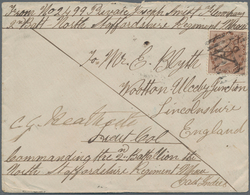 From No 2499 Private Joseph Smith
2nd Batt North Staffordshire Regiment
To Mr E. Blyth
Wootton Ulceby Junction
Lincolnshire
England
C. G. Heathcote
Lieut Col
Commanding the 2nd Battalion the
North Staffordshire Regiment
East Indies